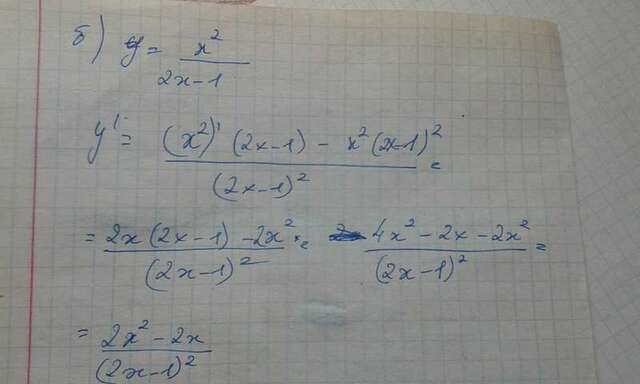 б) y = x² / (2x-1)
y' = ((x²)' (2x-1) - x² (2x-1)²) / (2x-1)² =
= (2x (2x-1) - 2x²) / (2x-1)² = (4x² - 2x - 2x²) / (2x-1)² =
= (2x² - 2x) / (2x-1)²